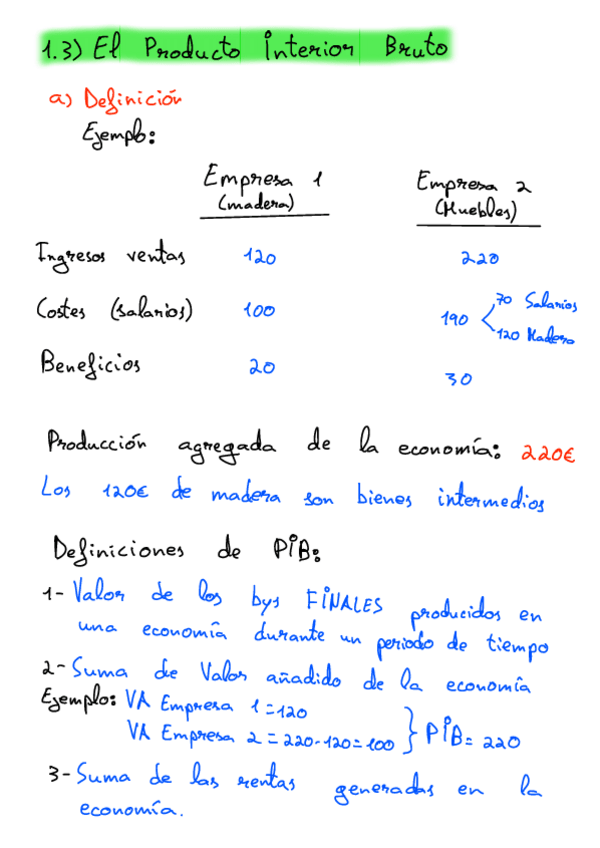 1.3) El Producto Interior Bruto
a) Definición
Ejemplo:
Empresa 1 Empresa 2
(madera) (Muebles)
Ingresos ventas 120 220
Costes (salarios) 100 190 70 Salarios
120 Madera
Beneficios 20 30
Producción agregada de la economía: 220€
Los 120€ de madera son bienes intermedios
Definiciones de PIB:
1- Valor de los bys FINALES producidos en
una economía durante un periodo de tiempo
2- Suma de Valor añadido de la economía
Ejemplo: VA Empresa 1 = 120
VA Empresa 2 = 220-120=100 } PIB= 220
3- Suma de las rentas generadas en la
economía.